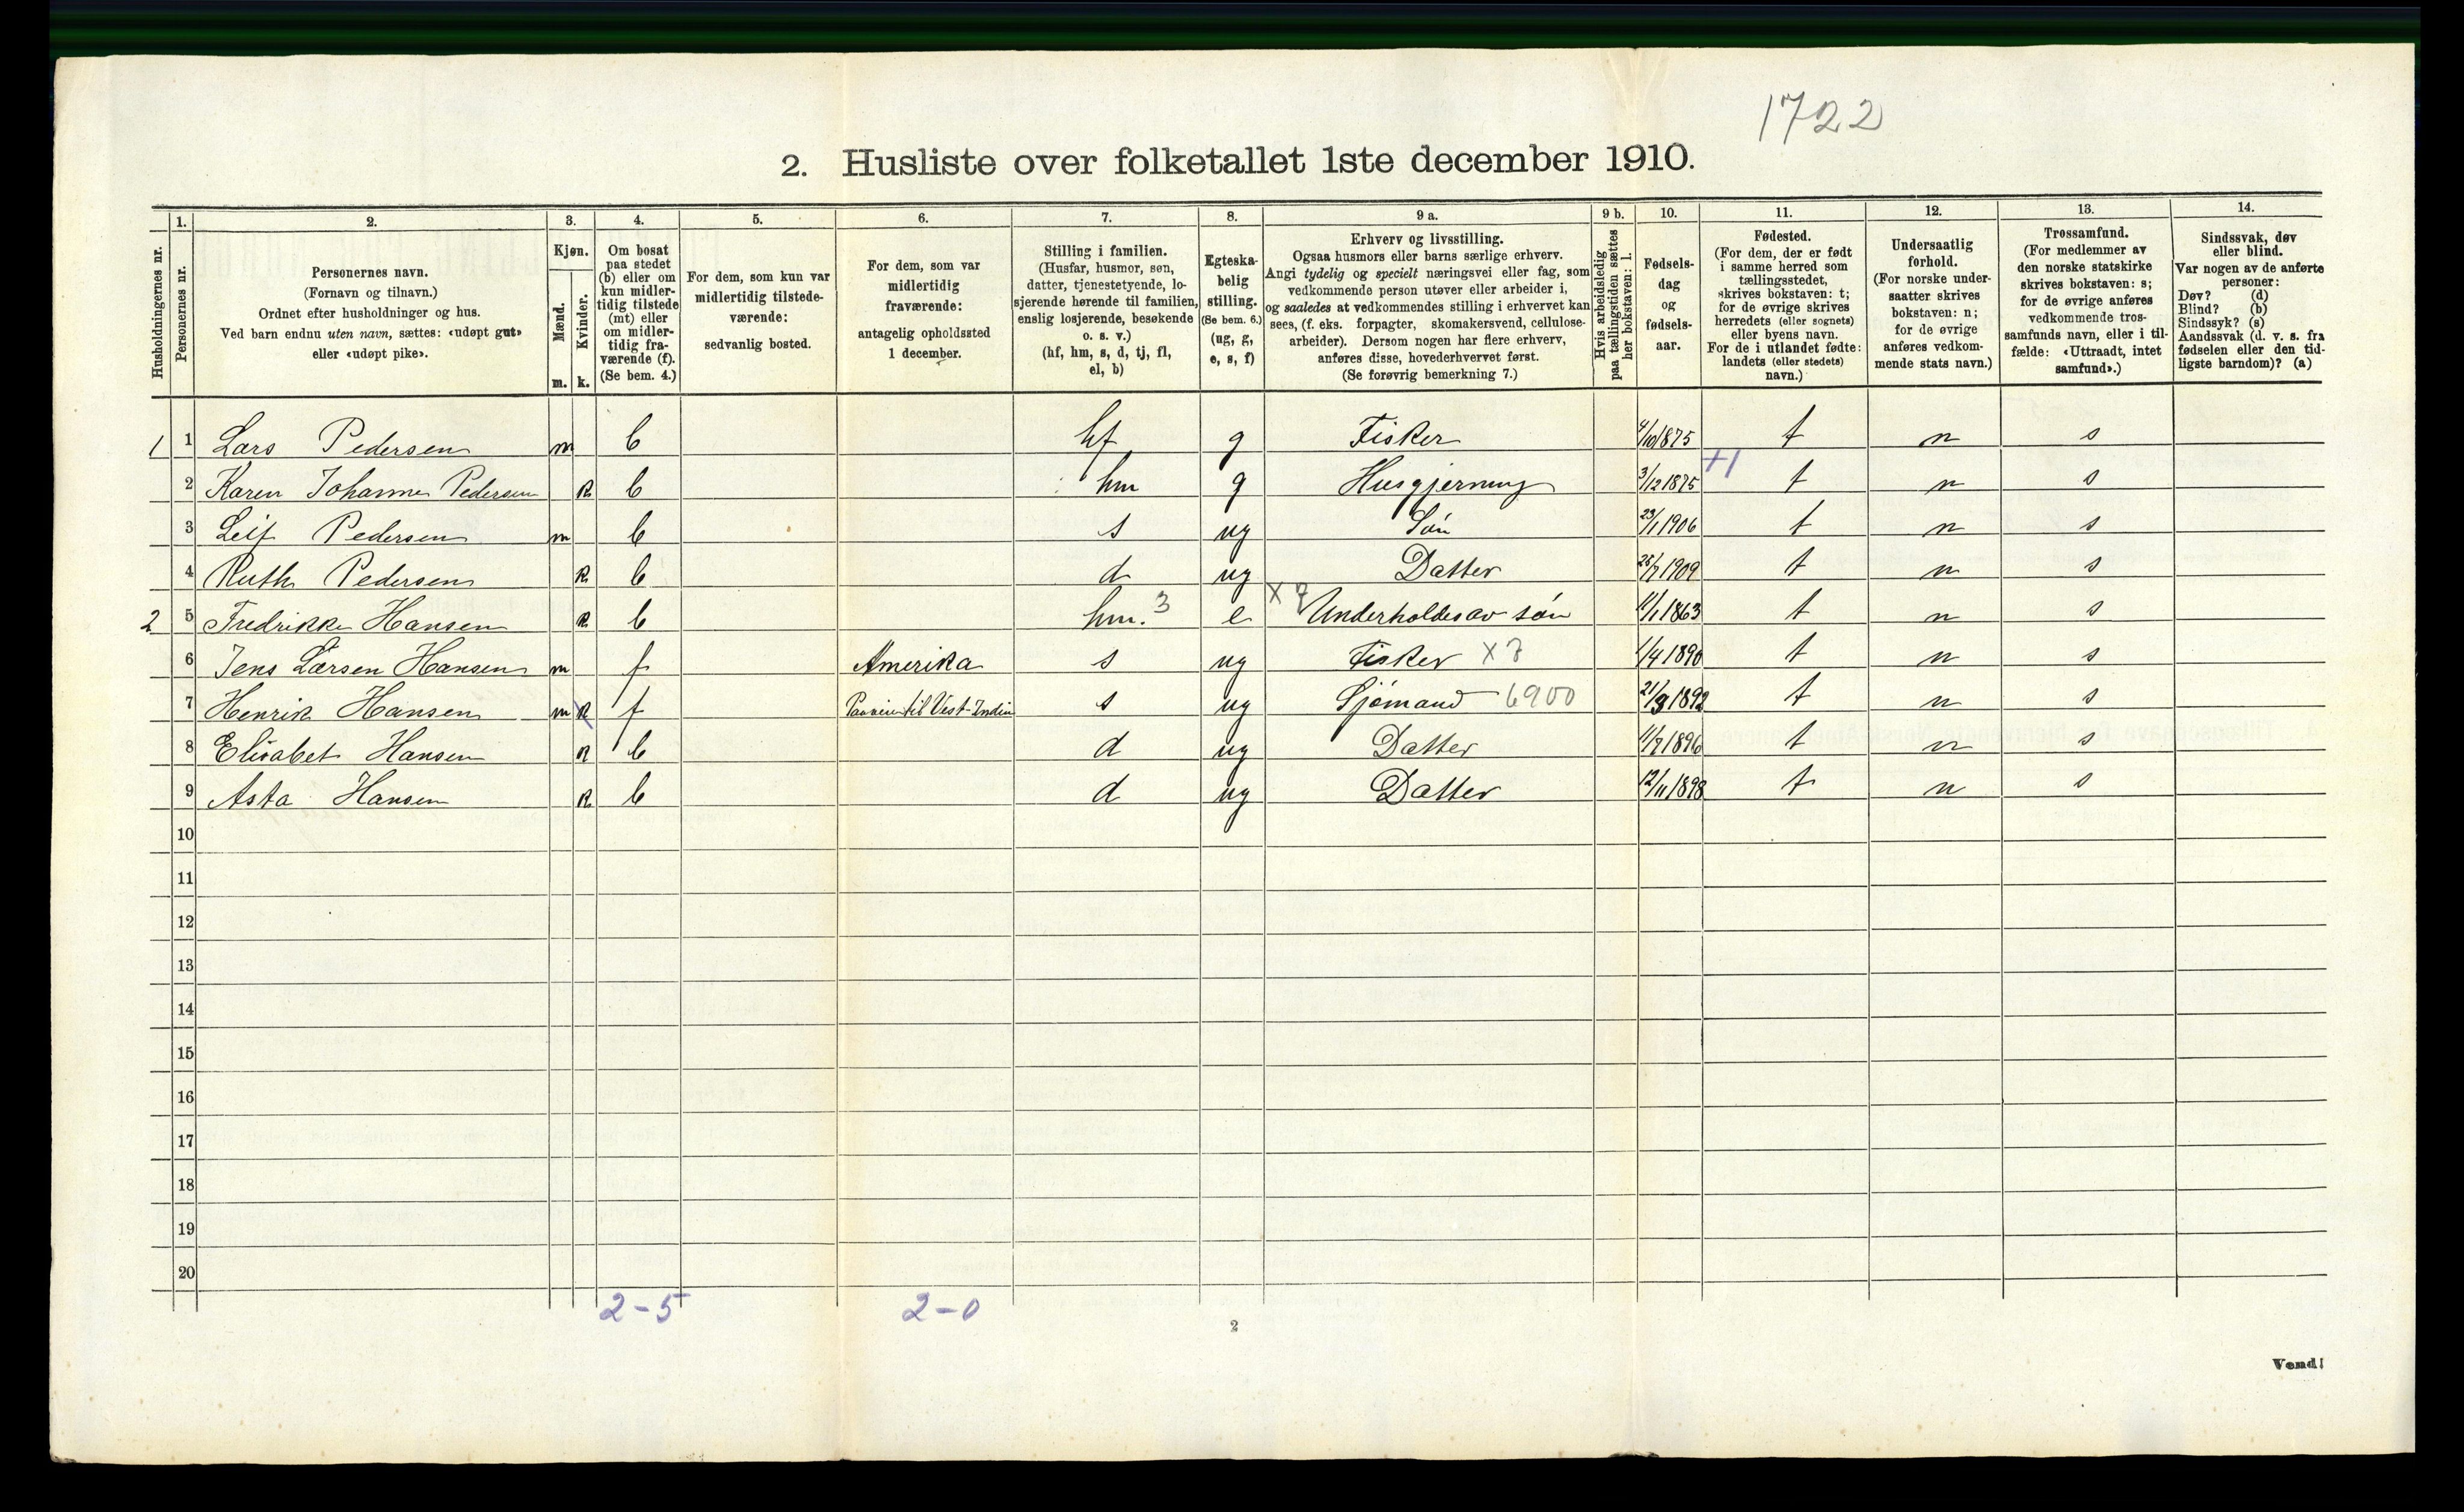 1722
2. Husliste over folketallet 1ste december 1910.
Husholdningernes nr.
1.
Personernes nr.
2.
Personernes navn.
(Fornavn og tilnavn.)
Ordnet efter husholdninger og hus.
Ved barn endnu uten navn, sættes: «udøpt gut»
eller «udøpt pike».
3.
Kjøn.
Mænd.
Kvinder.
m. k.
4.
Om bosat
paa stedet
(b) eller om
kun midler-
tidig tilstede
(mt) eller
om midler-
tidig fra-
værende (f).
(Se bem. 4.)
5.
For dem, som kun var
midlertidig tilstede-
værende:
sedvanlig bosted.
6.
For dem, som var
midlertidig
fraværende:
antagelig opholdssted
1 december.
7.
Stilling i familien.
(Husfar, husmor, søn,
datter, tjenestetyende, lo-
sjerende hørende til familien,
enslig losjerende, besøkende
o. s. v.)
(hf, hm, s, d, tj, fl,
el, b)
8.
Egteska-
belig
stilling.
(Se bem. 6.)
(ug, g,
e, s, f)
9 a.
Erhverv og livsstilling.
Ogsaa husmors eller barns særlige erhverv.
Angi tydelig og specielt næringsvei eller fag, som
vedkommende person utøver eller arbeider i,
og saaledes at vedkommendes stilling i erhvervet kan
sees, (f. eks. forpagter, skomakersvend, cellulose-
arbeider). Dersom nogen har flere erhverv,
anføres disse, hovederhvervet først.
(Se forøvrig bemerkning 7.)
9 b.
Hvis arbeidsledig
paa tællingstiden sættes
her bokstaven: l.
10.
Fødsels-
dag
og
fødsels-
aar.
11.
Fødested.
(For dem, der er født
i samme herred som
tællingsstedet,
skrives bokstaven: t;
for de øvrige skrives
herredets (eller sognets)
eller byens navn.
For de i utlandet fødte:
landets (eller stedets)
navn.)
12.
Undersaatlig
forhold.
(For norske under-
saatter skrives
bokstaven: n;
for de øvrige
anføres vedkom-
mende stats navn.)
13.
Trossamfund.
(For medlemmer av
den norske statskirke
skrives bokstaven: s;
for de øvrige anføres
vedkommende tros-
samfunds navn, eller i til-
fælde: «Uttraadt, intet
samfund».)
14.
Sindssvak, døv
eller blind.
Var nogen av de anførte
personer:
Døv? (d)
Blind? (b)
Sindssyk? (s)
Aandssvak (d. v. s. fra
fødselen eller den tid-
ligste barndom)? (a)
1 1 Lars Pedersen m b hf g Fisker 4/10 1875 t n s
+1
2 Karen Johanne Pedersen k b hm g Husgjerning 3/12 1875 t n s
3 Leif Pedersen m b s ug Søn 23/1 1906 t n s
4 Ruth Pedersen k b d ug Datter 25/7 1909 t n s
2 5 Fredrikke Hansen k b hm. 3 e X 7 Underholdes av søn 11/1 1863 t n s
6 Jens Larsen Hansen m f Amerika s ug Fisker X 7 1/4 1890 t n s
7 Henrik Hansen m k f Paaveien til Vest-Indien s ug Sjømand 6900 21/3 1892 t n s
8 Elisabet Hansen k b d ug Datter 11/7 1896 t n s
9 Asta Hansen k b d ug Datter 12/11 1898 t n s
10
11
12
13
14
15
16
17
18
19
20
2-5 2-0
2
Vend!